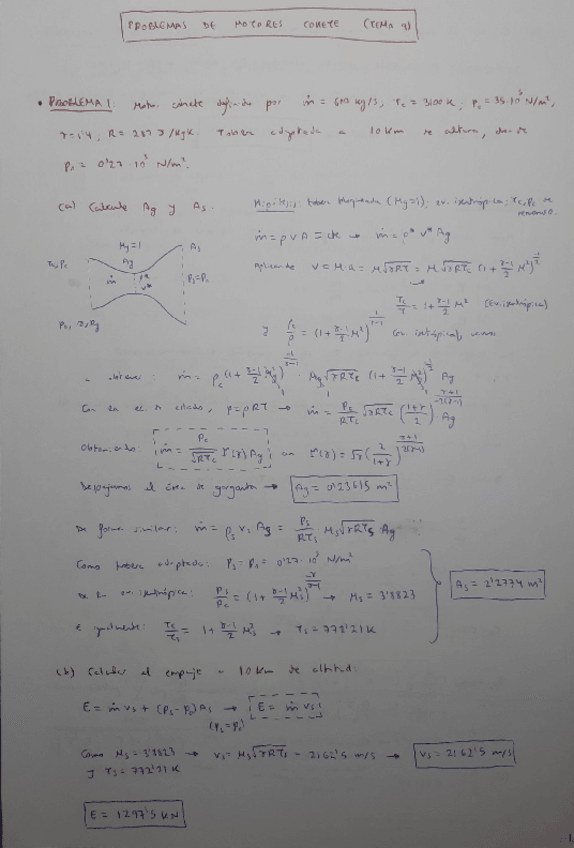 PROBLEMAS DE MOTORES COHETE (TEMA 9)
• PROBLEMA 1: Motor cohete definido por ṁ = 600 kg/s, Tc = 3100 K, Pc = 35·10⁵ N/m²,
γ = 1'4, R = 287 J/kgK. Tobera adaptada a 10 Km de altura, donde
P₀ = 0'27·10⁵ N/m².
(a) Calcule Ag y As. Hipótesis: tobera bloqueada (Mg=1); ev. isentrópica; Tc, Pc de remanso.
ṁ = ρvA = cte → ṁ = ρ* v* Ag
Mg=1 As
Tc, Pc Ag ṁ ρ* v* Ps=P₀
Aplicando V = M·a = M√γRT = M√γRTc (1 + γ-1/2 M²)^-1/2
Tc/T = 1 + γ-1/2 M² (Ev. isentrópica)
P₀, γ, Rg
y ρc/ρ = (1 + γ-1/2 M²)^1/γ-1 (ev isentrópica),
ṁ = ρc (1 + γ-1/2 Mg²)^-1/γ-1 · Mg √γRTc (1 + γ-1/2 Mg²)^-1/2 Ag
Con la ec. de estado, p = ρRT → ṁ = Pc/RTc √γRTc (1+γ/2)^-γ+1/2(γ-1) · Ag
Obteniendo: ṁ = Pc/√RTc Γ(γ) Ag con Γ(γ) = √γ (2/1+γ)^γ+1/2(γ-1)
Despejamos el área de garganta → Ag = 0'23615 m²
De forma similar: ṁ = ρs vs Ag = Ps/RTs Ms √γRTs Ag
Como tobera adaptada: Ps = P₀ = 0'27·10⁵ N/m²
De la ev. isentrópica: Ps/Pc = (1 + γ-1/2 Ms²)^-γ/γ-1 → Ms = 3'8823
As = 2'2774 m²
E igualmente: Tc/Ts = 1 + γ-1/2 Ms² → Ts = 772'21 K
(b) Calcular el empuje a 10 Km de altitud:
E = ṁ vs + (Ps - P₀) As → E = ṁ vs
(Ps = P₀)
Como Ms = 3'8823 → vs = Ms √γRTs = 2162'5 m/s → vs = 2162'5 m/s
y Ts = 772'21 K
E = 1297'5 KN